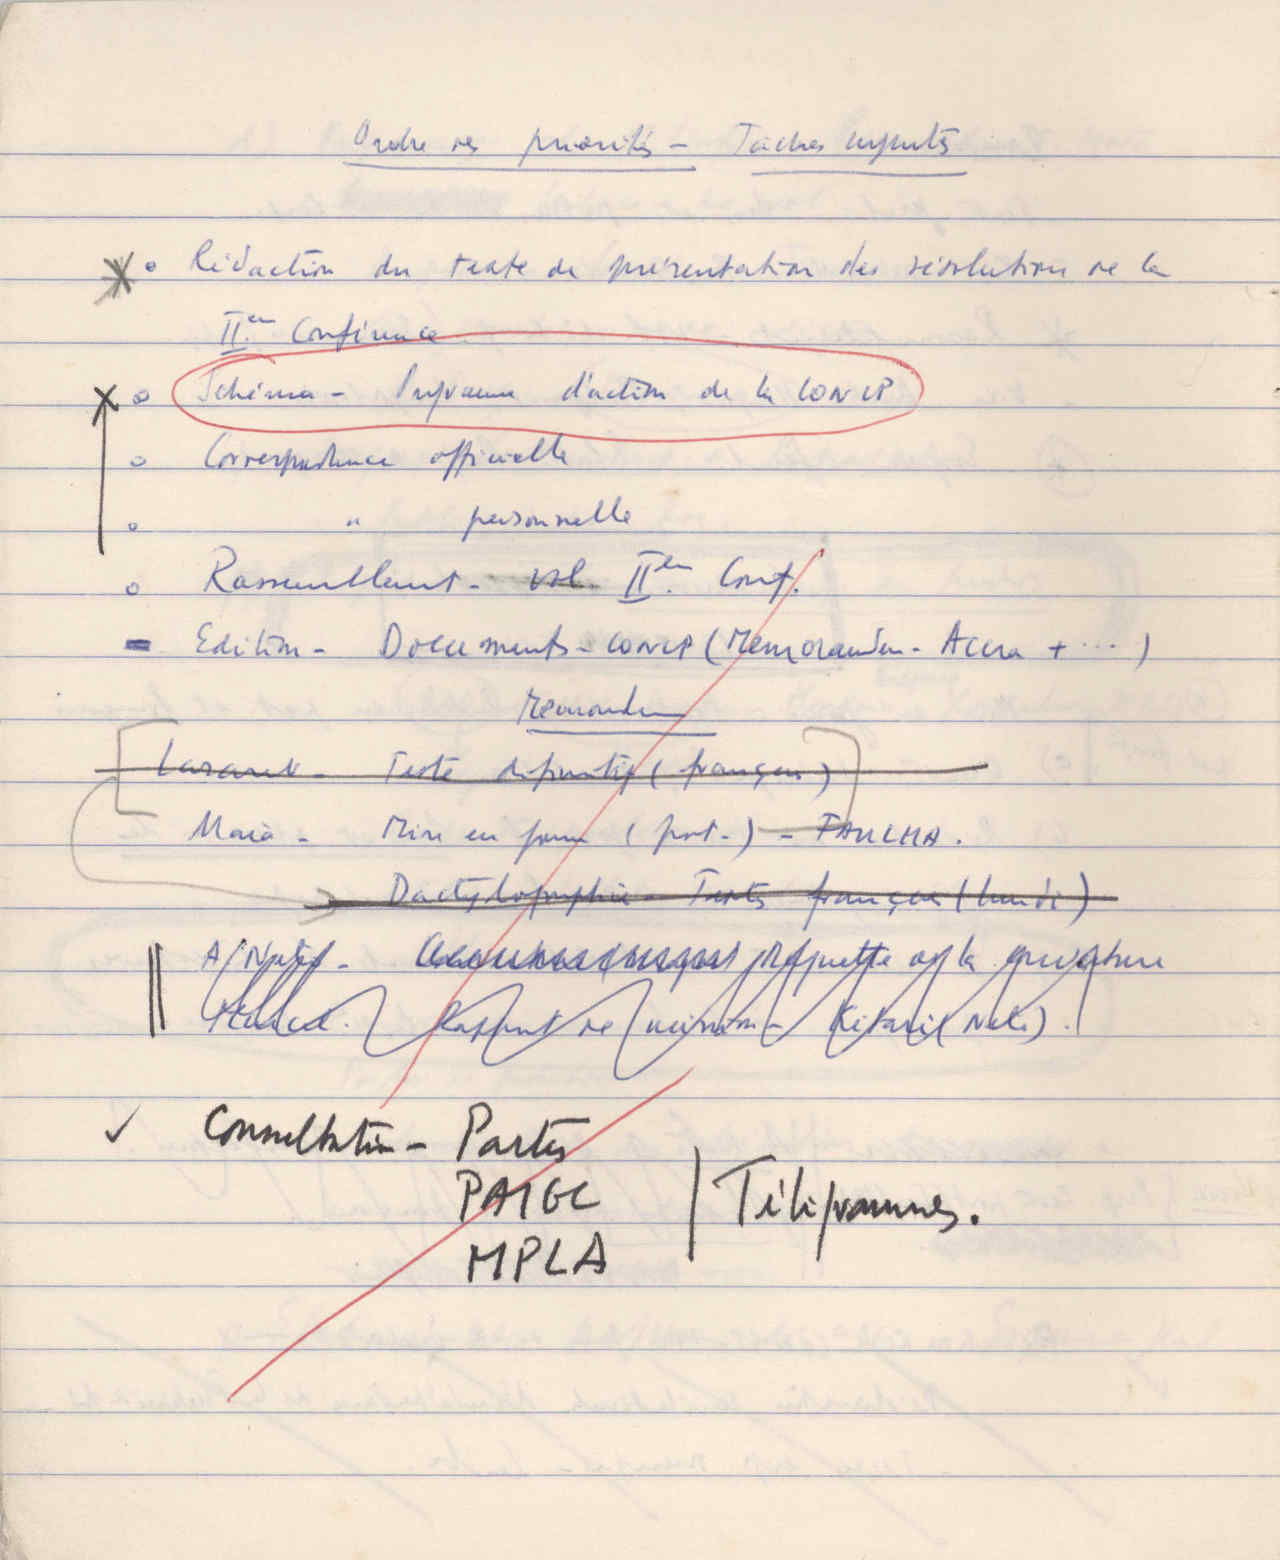 Ordre des priorités - Tâches urgentes
• Rédaction du texte de présentation des résolutions de la
IIème Conférence
• Schéma - Programme d'action de la CONCP
• Correspondance officielle
• " personnelle
• Rassemblement - vol. IIème Conf.
- Edition - Documents - CONCP (Memorandum - Accra + ...)
Memorandum
Texte définitif (français)
Maria - Mise en forme (port.) -
Dactylographie - Textes français (lundi)
maquette de la couverture
Rapport de
✓ Consultation - Partis
PAIGC
MPLA
Télégrammes.